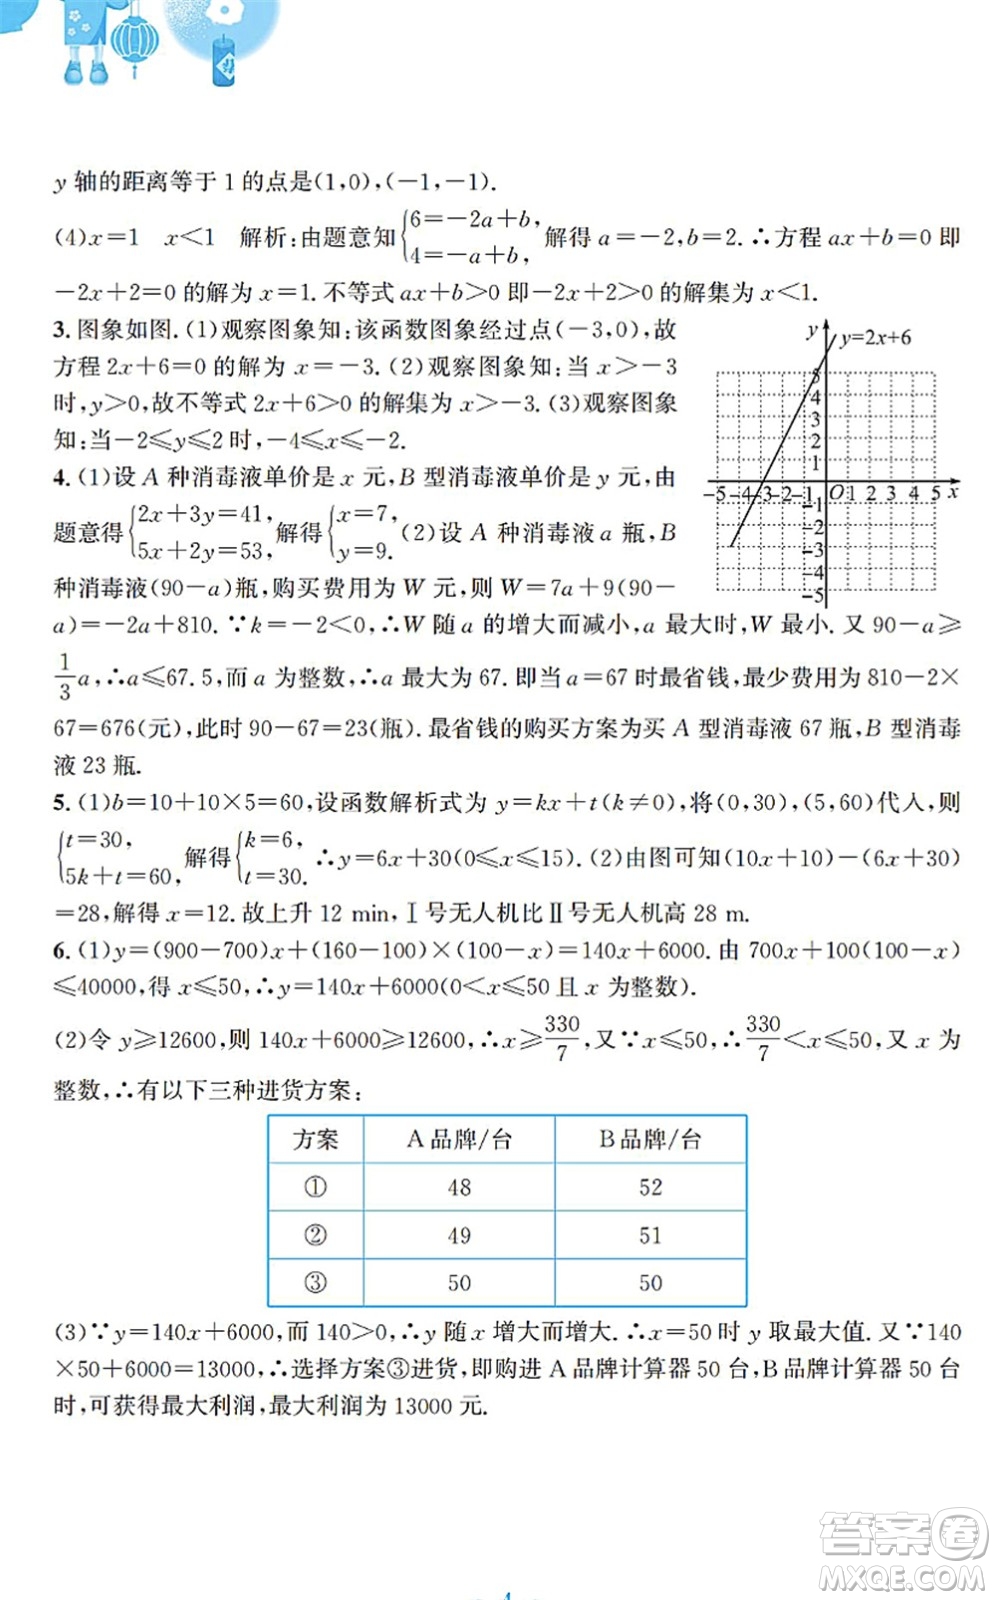 y 轴的距离等于 1 的点是(1,0),(−1,−1).
(4)x=1　x<1　解析:由题意知{6=−2a+b, 4=−a+b, 解得 a=−2,b=2.∴方程 ax+b=0 即
−2x+2=0 的解为 x=1.不等式 ax+b>0 即−2x+2>0 的解集为 x<1.
3.图象如图.(1)观察图象知:该函数图象经过点(−3,0),故
方程 2x+6=0 的解为 x=−3.(2)观察图象知:当 x>−3
时,y>0,故不等式 2x+6>0 的解集为 x>−3.(3)观察图象
知:当−2≤y≤2 时,−4≤x≤−2.
y
y=2x+6
5
4
3
2
1
−5−4−3−2−1 O 1 2 3 4 5 x
−1
−2
−3
−4
−5
4.(1)设 A 种消毒液单价是 x 元,B 型消毒液单价是 y 元,由
题意得{2x+3y=41, 5x+2y=53, 解得{x=7, y=9. (2)设 A 种消毒液 a 瓶,B
种消毒液(90−a)瓶,购买费用为 W 元,则 W=7a+9(90−
a)=−2a+810.∵k=−2<0,∴W 随 a 的增大而减小,a 最大时,W 最小.又 90−a≥
1/3 a,∴a≤67.5,而 a 为整数,∴a 最大为 67.即当 a=67 时最省钱,最少费用为 810−2×
67=676(元),此时 90−67=23(瓶).最省钱的购买方案为买 A 型消毒液 67 瓶,B 型消毒
液 23 瓶.
5.(1)b=10+10×5=60,设函数解析式为 y=kx+t(k≠0),将(0,30),(5,60)代人,则
{t=30, 5k+t=60, 解得{k=6, t=30. ∴y=6x+30(0≤x≤15).(2)由图可知(10x+10)−(6x+30)
=28,解得 x=12.故上升 12 min,Ⅰ号无人机比Ⅱ号无人机高 28 m.
6.(1)y=(900−700)x+(160−100)×(100−x)=140x+6000.由 700x+100(100−x)
≤40000,得 x≤50,∴y=140x+6000(0<x≤50 且 x 为整数).
(2)令 y≥12600,则 140x+6000≥12600,∴x≥330/7,又∵x≤50,∴330/7<x≤50,又 x 为
整数,∴有以下三种进货方案:
方案　A 品牌/台　B 品牌/台
①　48　52
②　49　51
③　50　50
(3)∵y=140x+6000,而 140>0,∴y 随 x 增大而增大.∴x=50 时 y 取最大值.又∵140
×50+6000=13000,∴选择方案③进货,即购进 A 品牌计算器 50 台,B 品牌计算器 50 台
时,可获得最大利润,最大利润为 13000 元.
答案卷
MXQE.COM